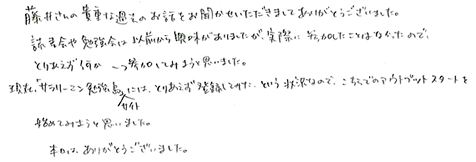 藤井さんの貴重な過去のお話をお聞かせいただきましてありがとうございました。
読書会や勉強会は以前から興味がありましたが、実際に参加したことはなかったので、
とりあえず何か一つ参加してみようと思いました。
現在、「サラリーマン勉強島」には、とりあえず登録してみた、という状況なので、こちらでのアウトプットスタートを
サイト
始めてみようと思いました。
本日は、ありがとうございました。